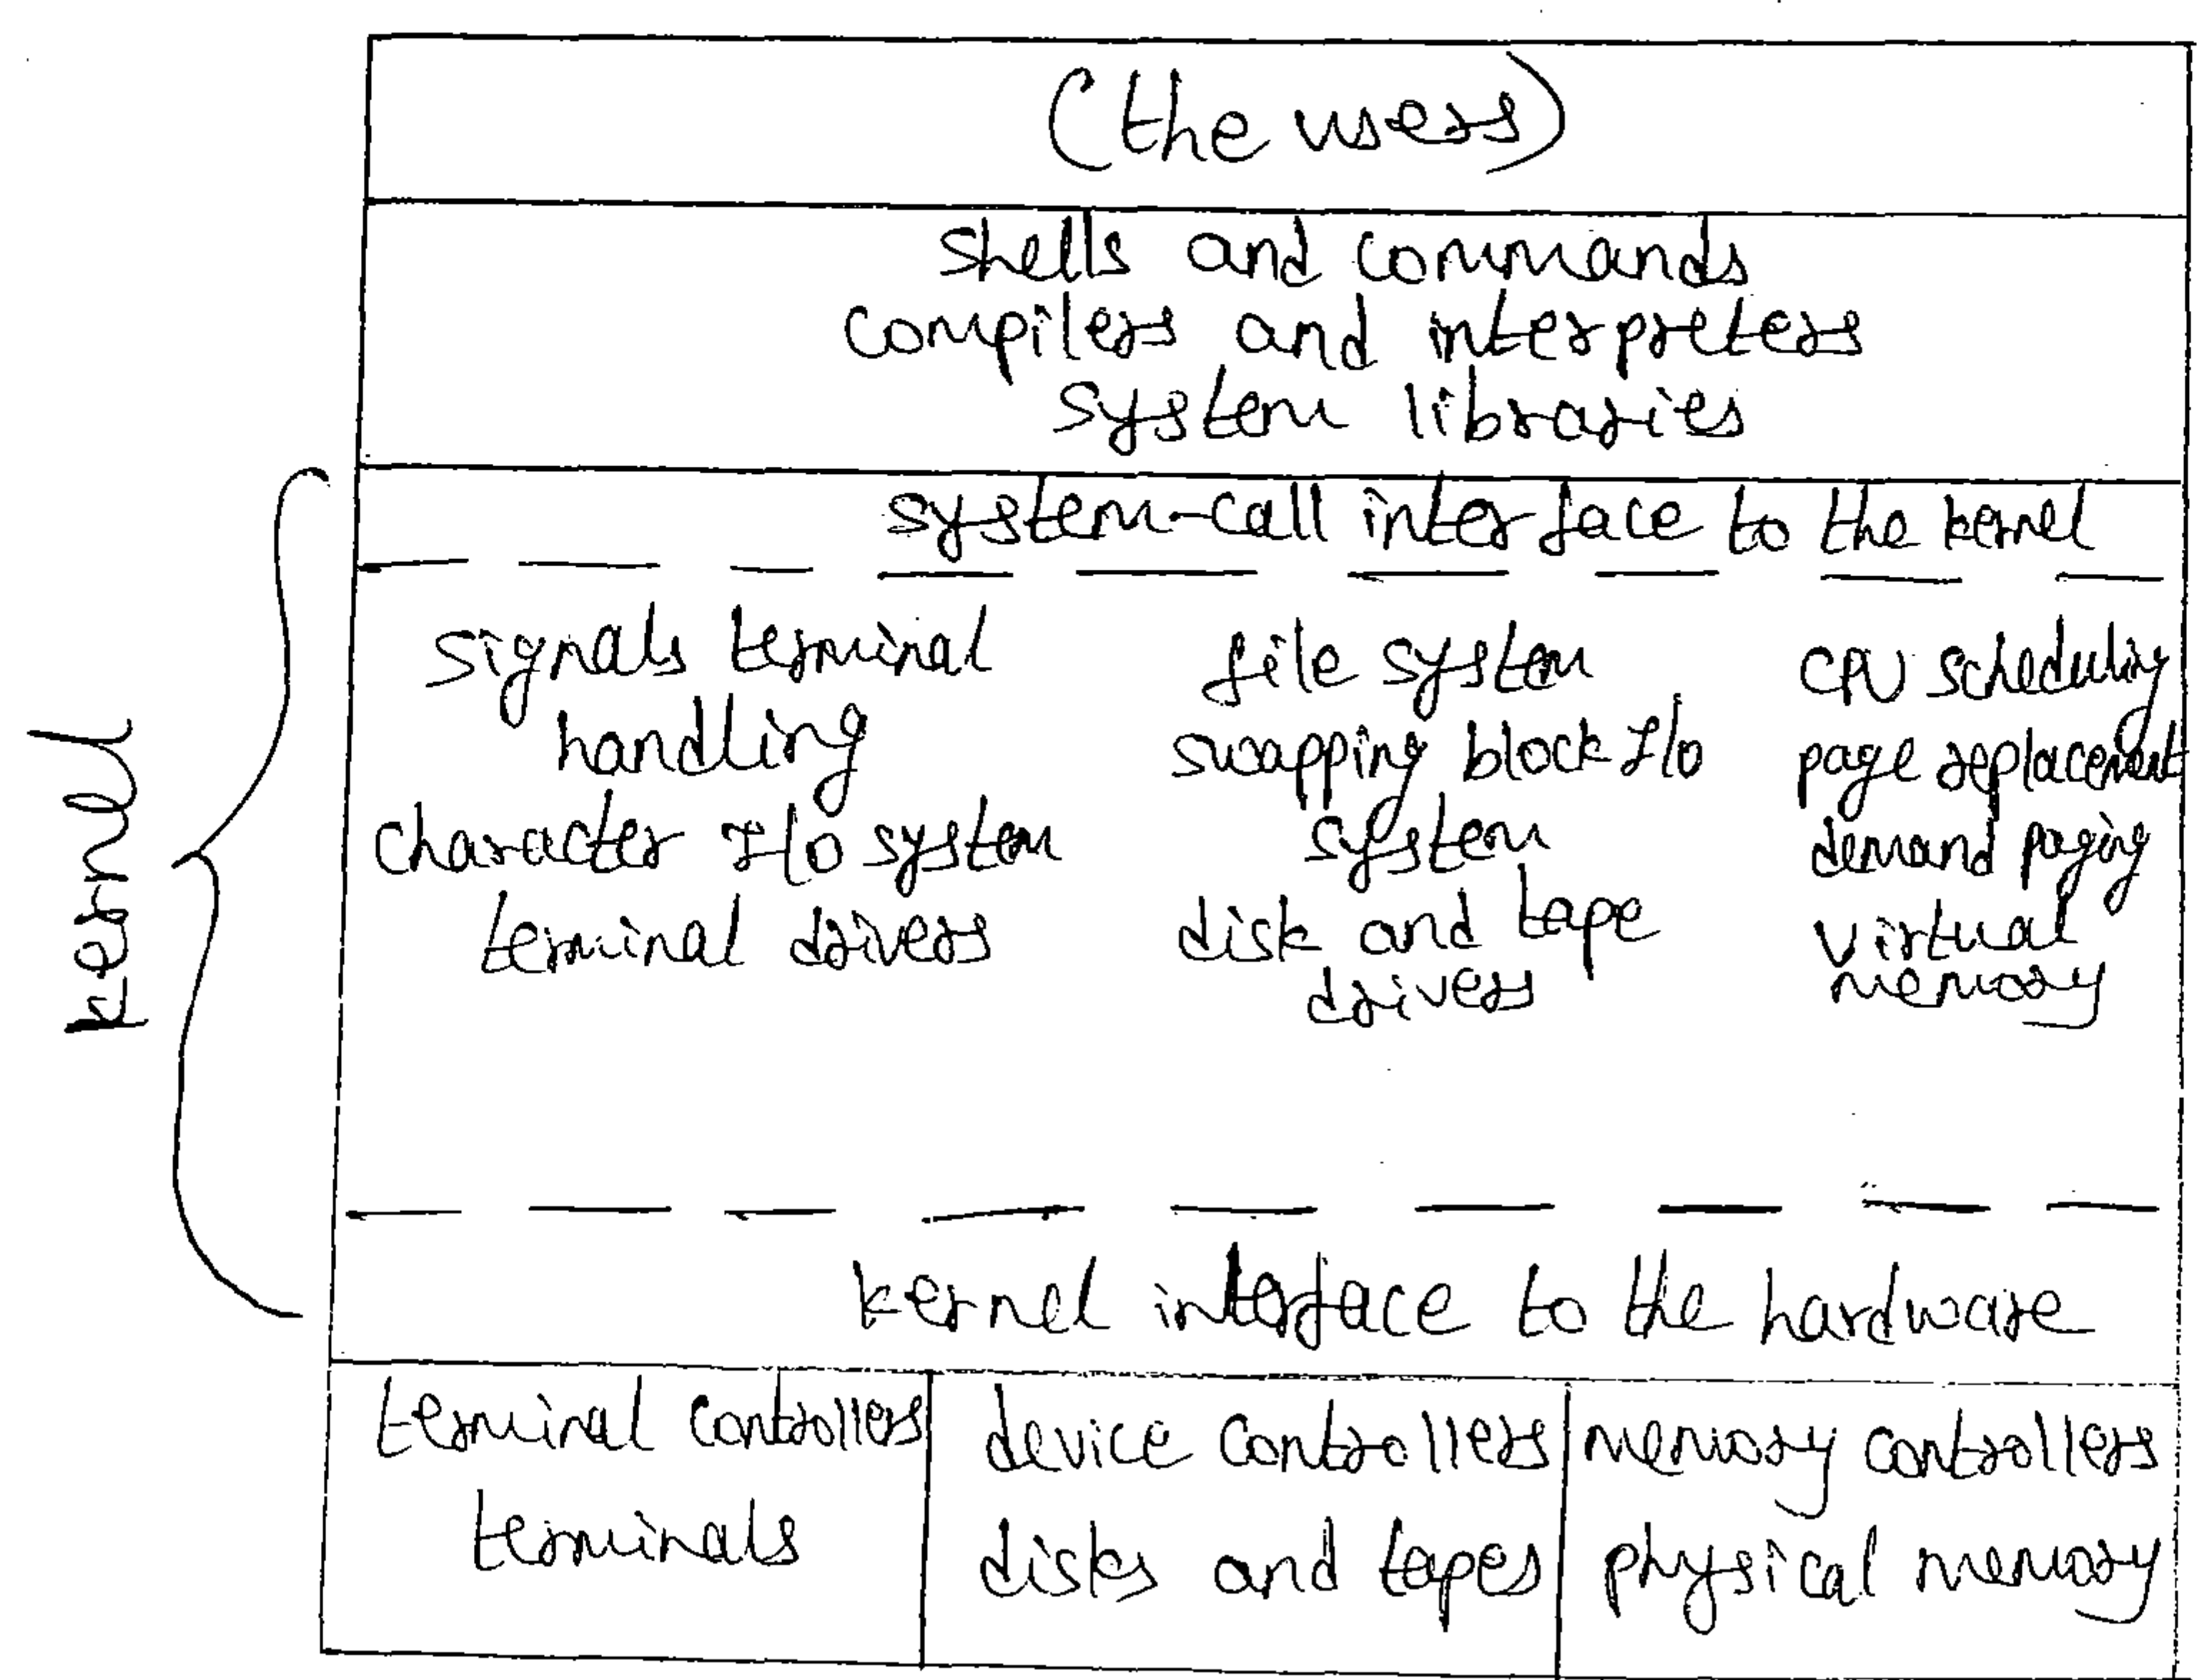 (the users)
shells and commands
compilers and interpreters
system libraries
system-call interface to the kernel
signals terminal
handling
character I/O system
terminal drivers
file system
swapping block I/O
system
disk and tape
drivers
CPU scheduling
page replacement
demand paging
virtual
memory
kernel
kernel interface to the hardware
terminal controllers
terminals
device controllers
disks and tapes
memory controllers
physical memory